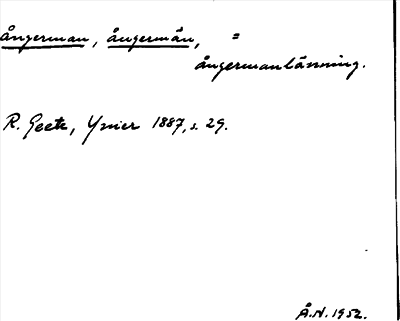 ångerman, ångermän, =
ångermanlänning.
R. Geete, Ymer 1887, s. 29.
Å.N. 1952.